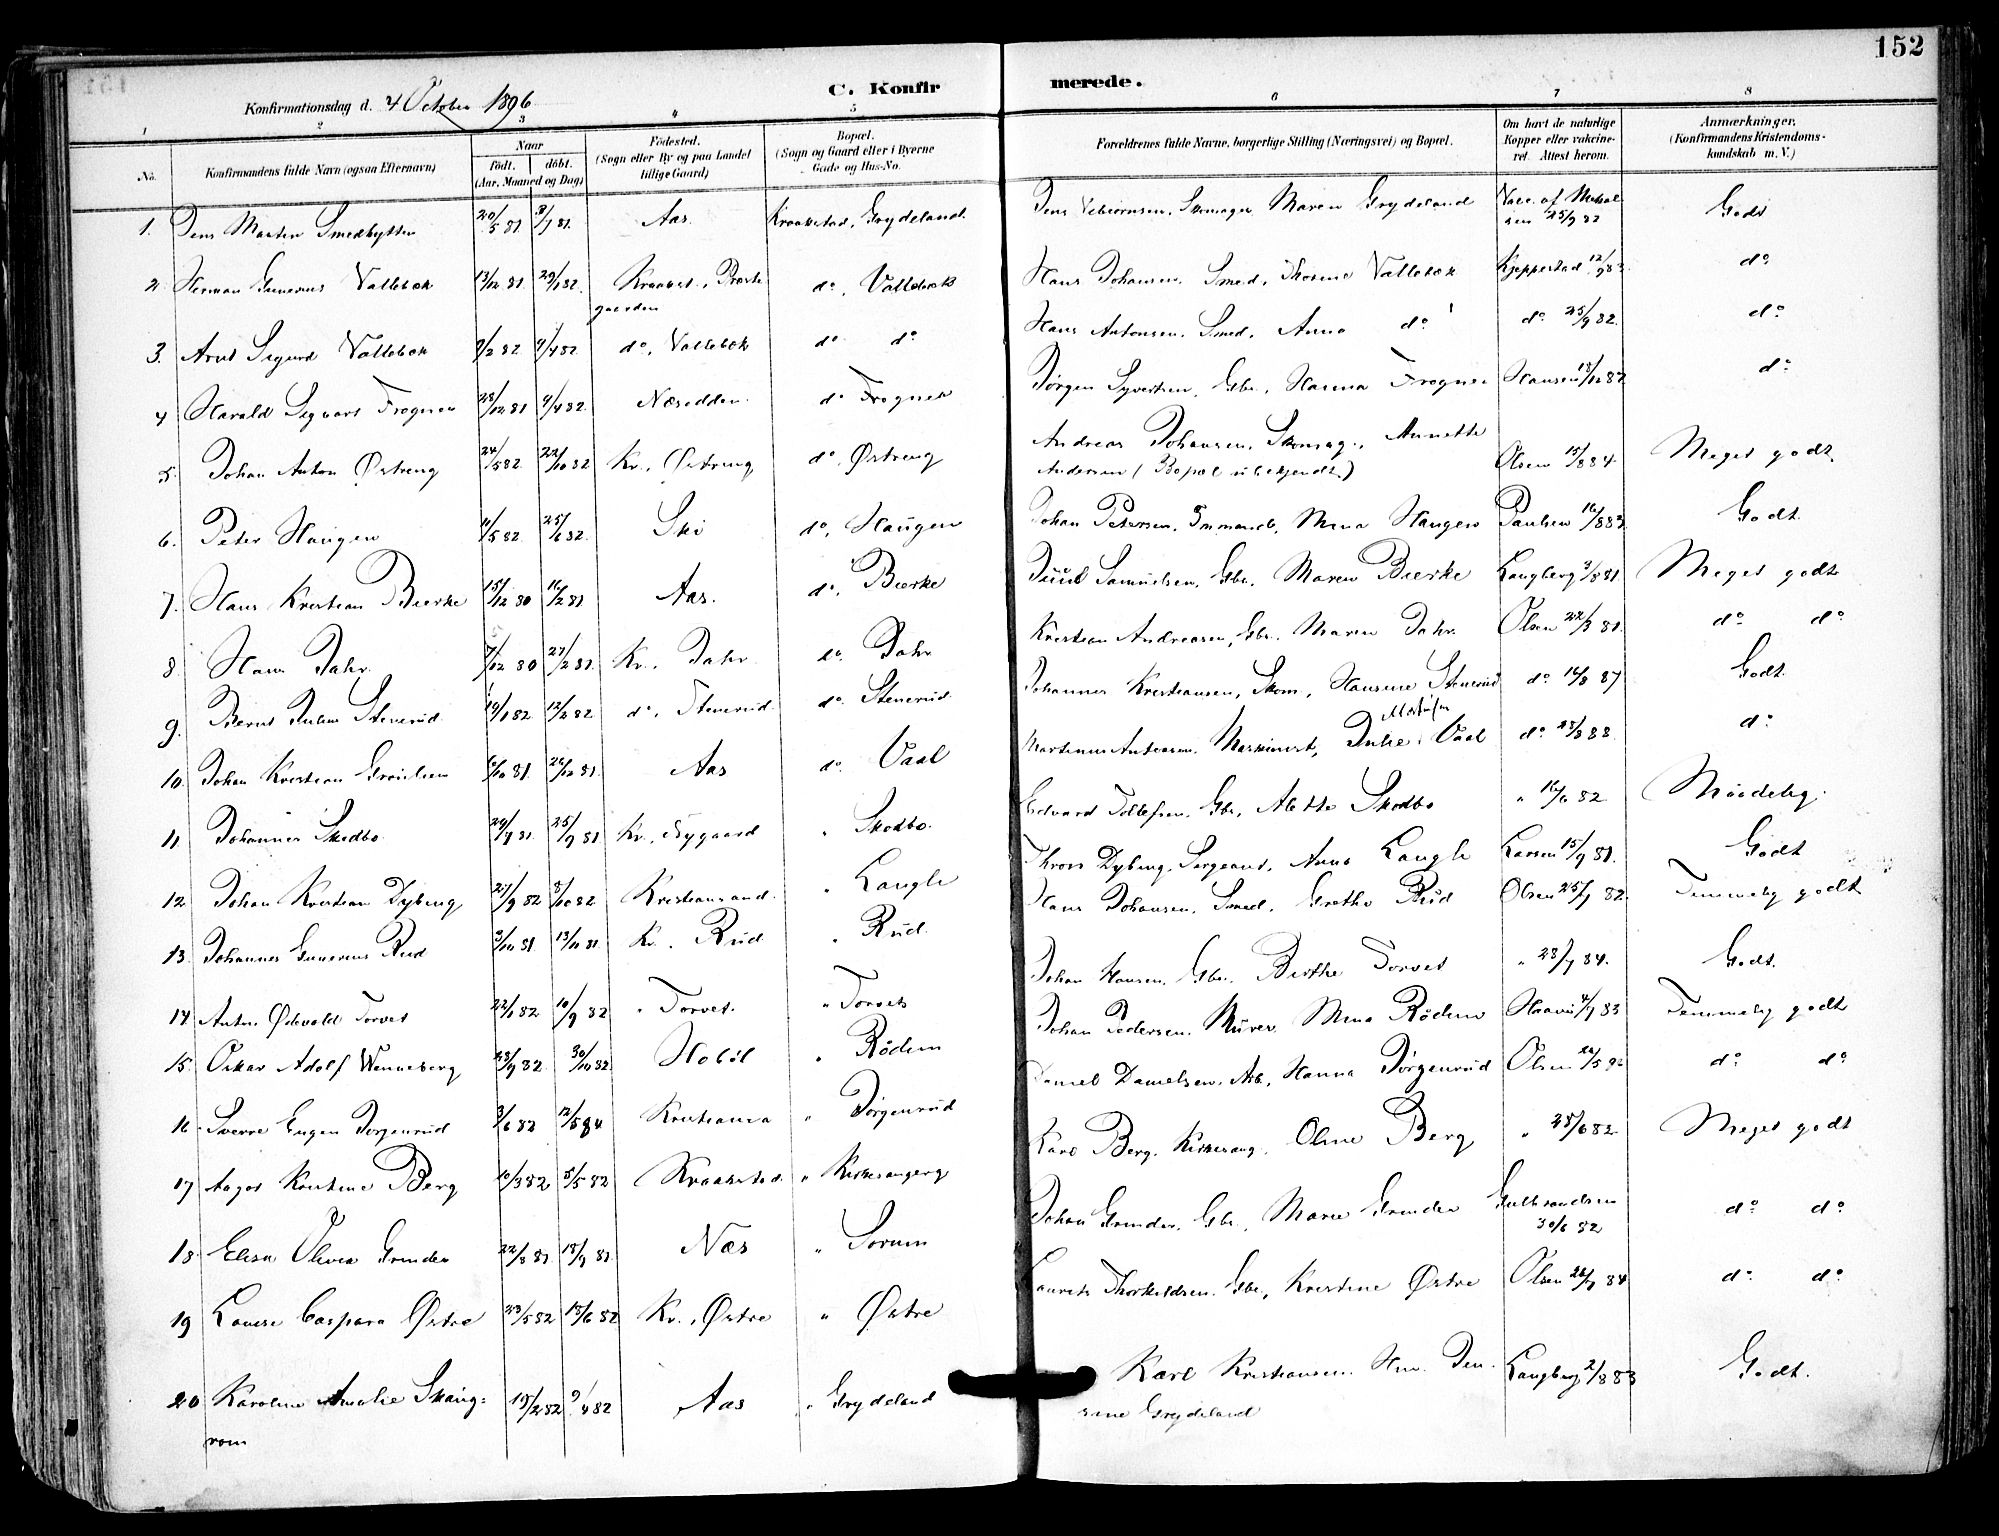 152
C. Konfirmerede.
Konfirmationsdag d. 4 October 1896
1 2 3 4 5 6 7 8
No.
Konfirmandens fulde Navn (ogsaa Efternavn)
Naar
født. døbt.
(Aar, Maaned og Dag)
Fødested.
(Sogn eller By og paa Landet
tillige Gaard)
Bopæl.
(Sogn og Gaard eller i Byerne
Gade og Hus-No.
Forældrenes fulde Navne, borgerlige Stilling (Næringsvei) og Bopæl.
Om havt de naturlige
Kopper eller vakcine-
ret. Attest herom.
Anmærkninger.
(Konfirmandens Kristendoms-
kundskab m. V.)
1. Jens Martin Smedhytten 20/5 81 Aas Kraakstad, Grydeland. Skomager Maren Grydeland Vacc. af 25/9 82 Godt
2. Herman Gunerius Vallebæk 13/12 81 29/1 82 Kraakst., Præste d°, Vallebæk Hans Johansen, Smed, Thorine Vallebæk Kjeppestad 12/9 83 d°
gaarden
3. Arnt Sigurd Vallebæk 2/2 82 9/4 82 d°, Vallebæk d° d° Hans Antonsen, Smed, Anna d° d° 25/9 82. d°
4 Harald Sigvart Frogner 28/12 81 9/4 82 Næsodden d° Frogner Jørgen Syvertsen, Gbr., Hanna Frogner Hansen 18/12 82 d°
5. Johan Anton Østreng 24/5 82 22/10 82 Kr., Østreng d°, Østreng Andreas Johansen, Skomag., Annette
Andersen (Bopæl ubekjendt.) Olsen 15/8 84. Meget godt.
6. Peter Haugen 11/5 82 25/6 82 Ski d°, Haugen Johan Petersen, Mina Haugen Paulsen 16/8 83 Godt.
7. Hans Kristian Bierke 15/12 80 16/2 81 Aas. d°, Bierke Juul Samuelsen, Gbr. Maren Bierke Langberg 2/8 81. Meget godt
8 Hans Dahr 7/12 80 27/2 81 Kr., Dahr d°. Dahr Kristian Andreasen, Gbr. Maren Dahr Olsen 22/3 81. d° d°
9. Bernt Julius Stenerud 19/1 82 12/2 82 d°, Stenerud d°. Stenerud Johannes Kristiansen, Skom., Hansine Stenerud d° 16/8 87 Godt.
10. Johan Kristian 6/10 81 26/12 81. Aas d°. Vaal Martinius Maskinist, Julie Vaal d° 23/8 88. d°
11 Johannes Skodbo. 29/7 81 25/9 81 Kr., Nygaard " Skodbo. Edvard Tollefsen, Gbr., Alette Skodbo " 16/6 82 Maadelig.
12. Johan Kristian Dyberg 27/9 82 8/10 82 Kristiansand. " Langli Dyberg, Sergeant, Anna Langli Larsen 15/9 81. Godt
13. Johannes Gunerius Rud 3/10 81 13/11 81. Kr., Rud " Rud. Hans Johansen, Smed, Grethe Rud Olsen 25/7 82. Temmelig godt
14 Anton Ødevald Torvet 22/1 82 10/9 82 " Torvet. " Torvet Johan Hansen, Gbr. Berthe Torvet " 23/7 84. Godt.
15. Oskar Adolf Wenneberg 23/9 82 30/10 82 Hobøl " Røden Johan Pedersen, Murer, Mina Røden 4/9 83 Temmelig godt
16. Sverre Eugen Jørgenrud 3/6 82 12/5 84 Kristiania " Jørgenrud Daniel Danielsen, Arb., Hanna Jørgenrud Olsen d° d°
17 Aagot Kristine Berg 10/3 82 5/5 82 Kraakstad " Kirkesangerg Karl Berg, Kirkesang., Oline Berg " 28/6 82. Meget godt
18. Elisa Olivia Grinder 22/8 81 18/9 81. Næs " Sorum Johan Grinder, Gbr., Marie Grinder Gulbrandsen
30/6 82 d° d°
19 Lovise Caspara Østre 23/5 82 18/6 82 Kr., Østre " Østre Laurits Thorkildsen, Gbr., Kristine Østre Olsen 26/9 84 d° d°
20 Karoline Amalie Skaug= 19/2 82 9/4 82 Aas " Grydeland Karl Kristiansen, Hm. Jen- Langberg 2/8 83 Godt.
rom sine Grydeland